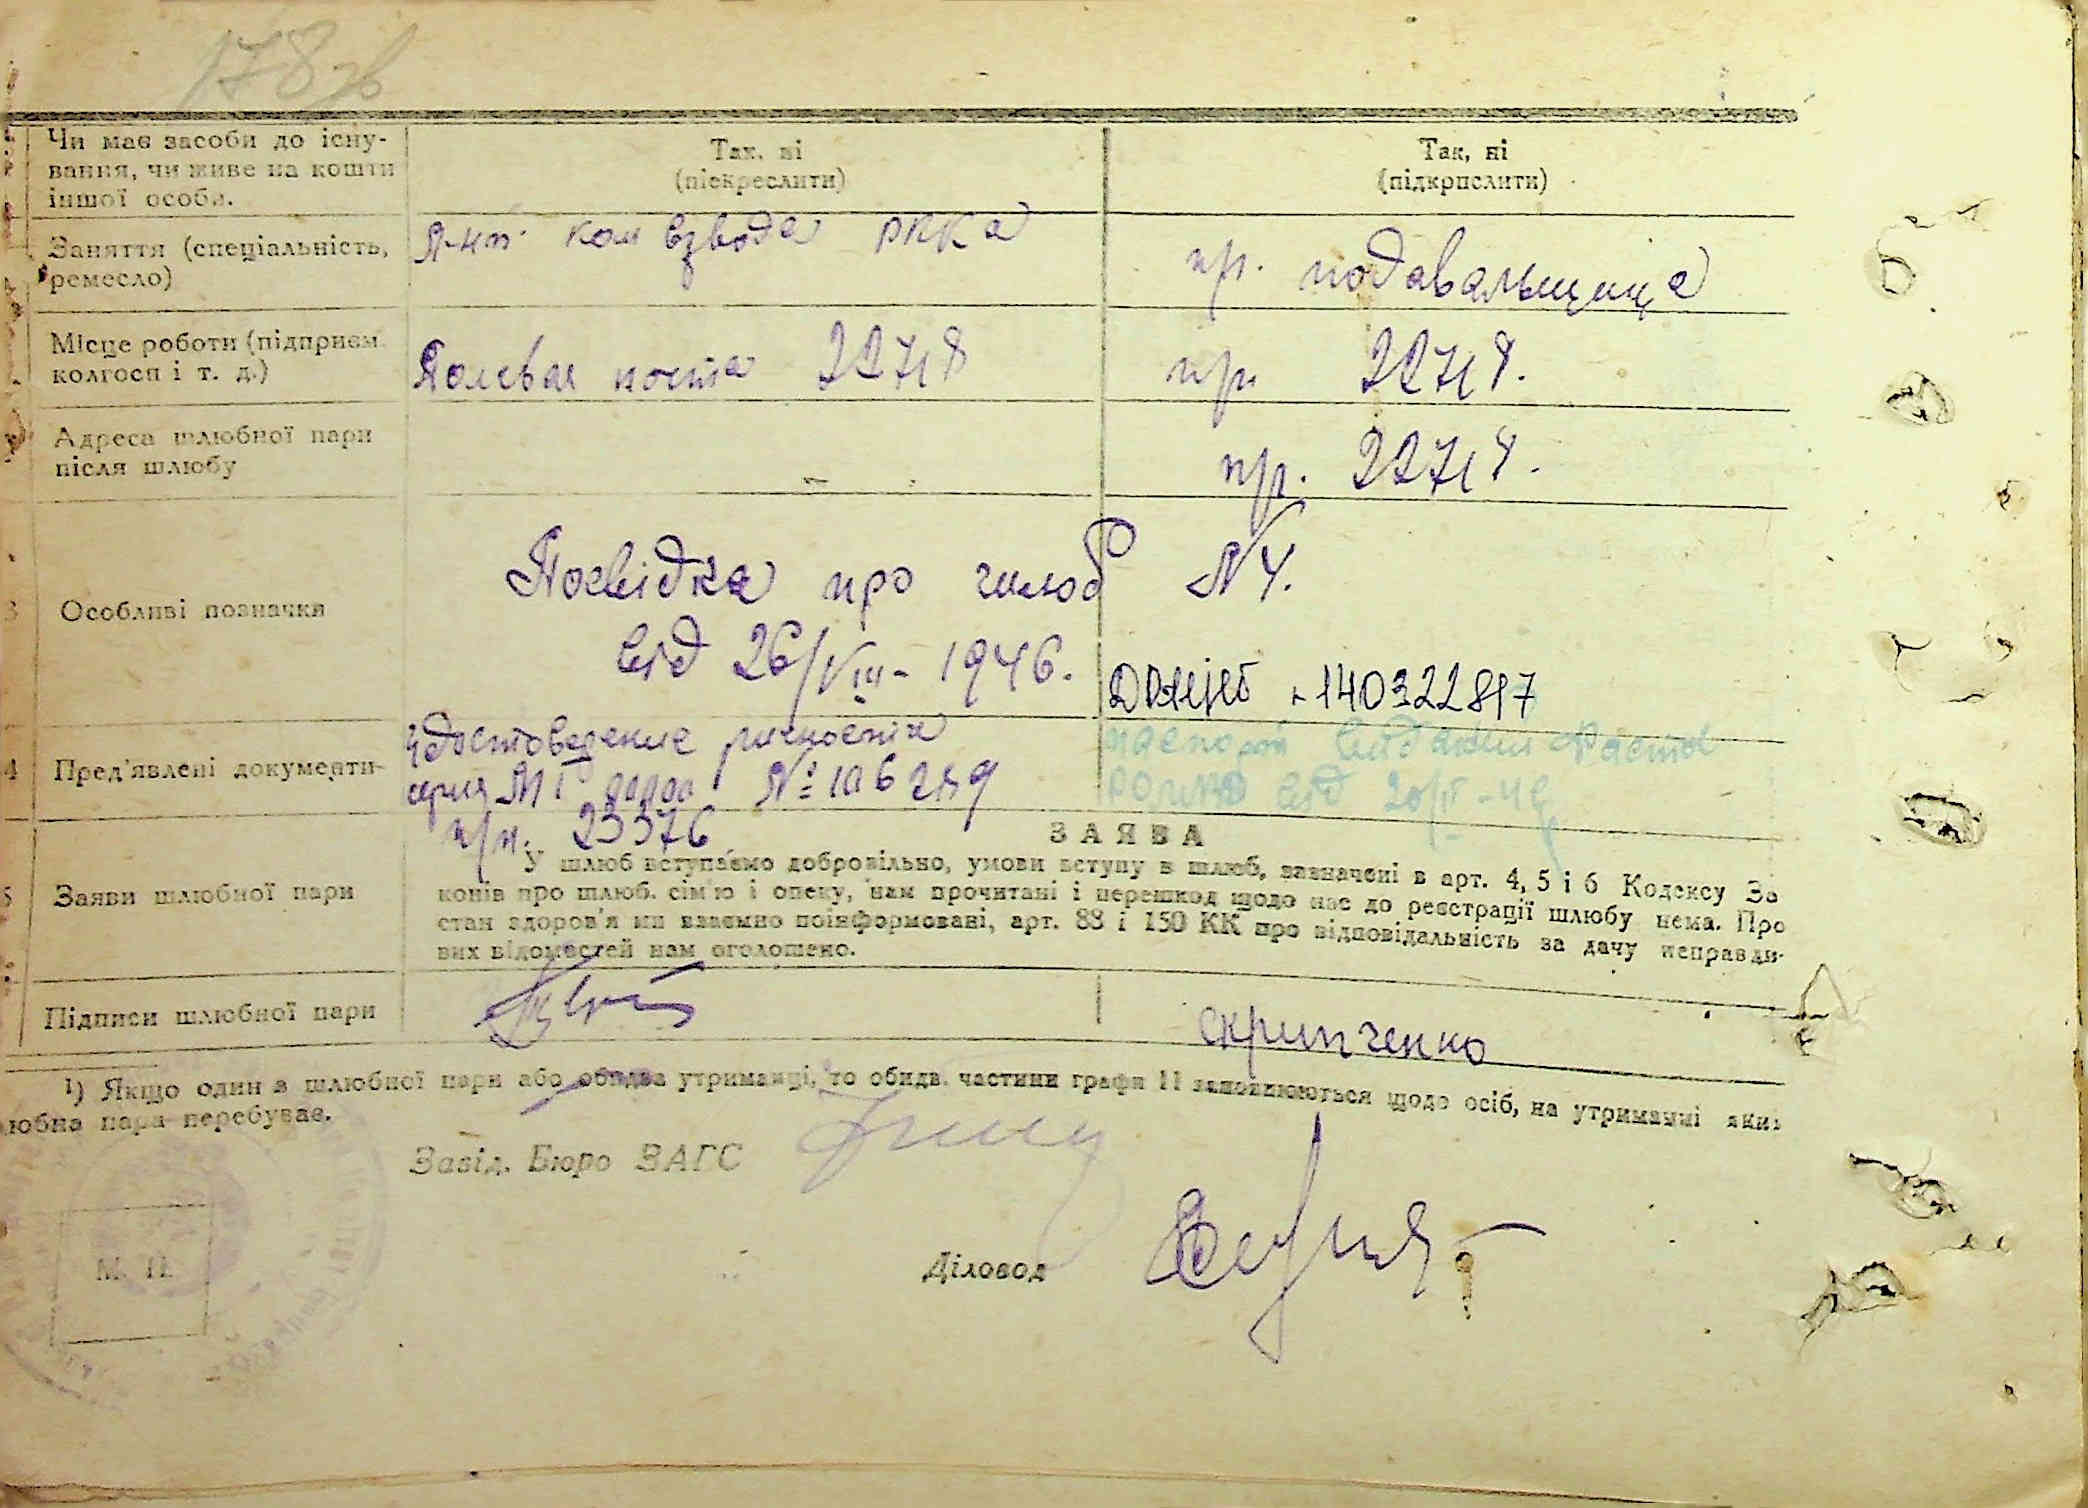 178зв
Чи має засоби до існу-
вання, чи живе на кошти
іншої особи.
Так, ні
(підкреслити)
Так, ні
(підкрпслити)
Заняття (спеціальність,
ремесло)
л-нт ком взвода РККА
пр. подавальщица
Місце роботи (підприєм.
колгосп і т. д.)
Полевая почта 22718
пр 22718.
Адреса шлюбної пари
після шлюбу
пр. 22718.
3 Особливі позначки
Посвідка про шлюб N 4.
від 26/VIII - 1946.
140322817
4 Пред'явлені документи
Удостоведение личности
серия № 106289
п/п. 23376
паспорт від 20/
ЗАЯВА
5 Заяви шлюбної пари
У шлюб вступаємо добровільно, умови вступу в шлюб, зазначені в арт. 4, 5 і 6 Кодексу За
конів про шлюб. сім'ю і опеку, нам прочитані і перешкод щодо нас до реєстрації шлюбу нема. Про
стан здоров'я ми взаємно поінформовані, арт. 88 і 150 КК про відповідальність за дачу неправди-
вих відомостей нам оголошено.
Підписи шлюбної пари
Скрипченко
¹) Якщо один з шлюбної пари або обидва утриманці, то обидв. частини графи 11 заповнюються щодо осіб, на утриманні яких
любна пара перебуває.
Завід. Бюро ЗАГС
М. П.
Діловод